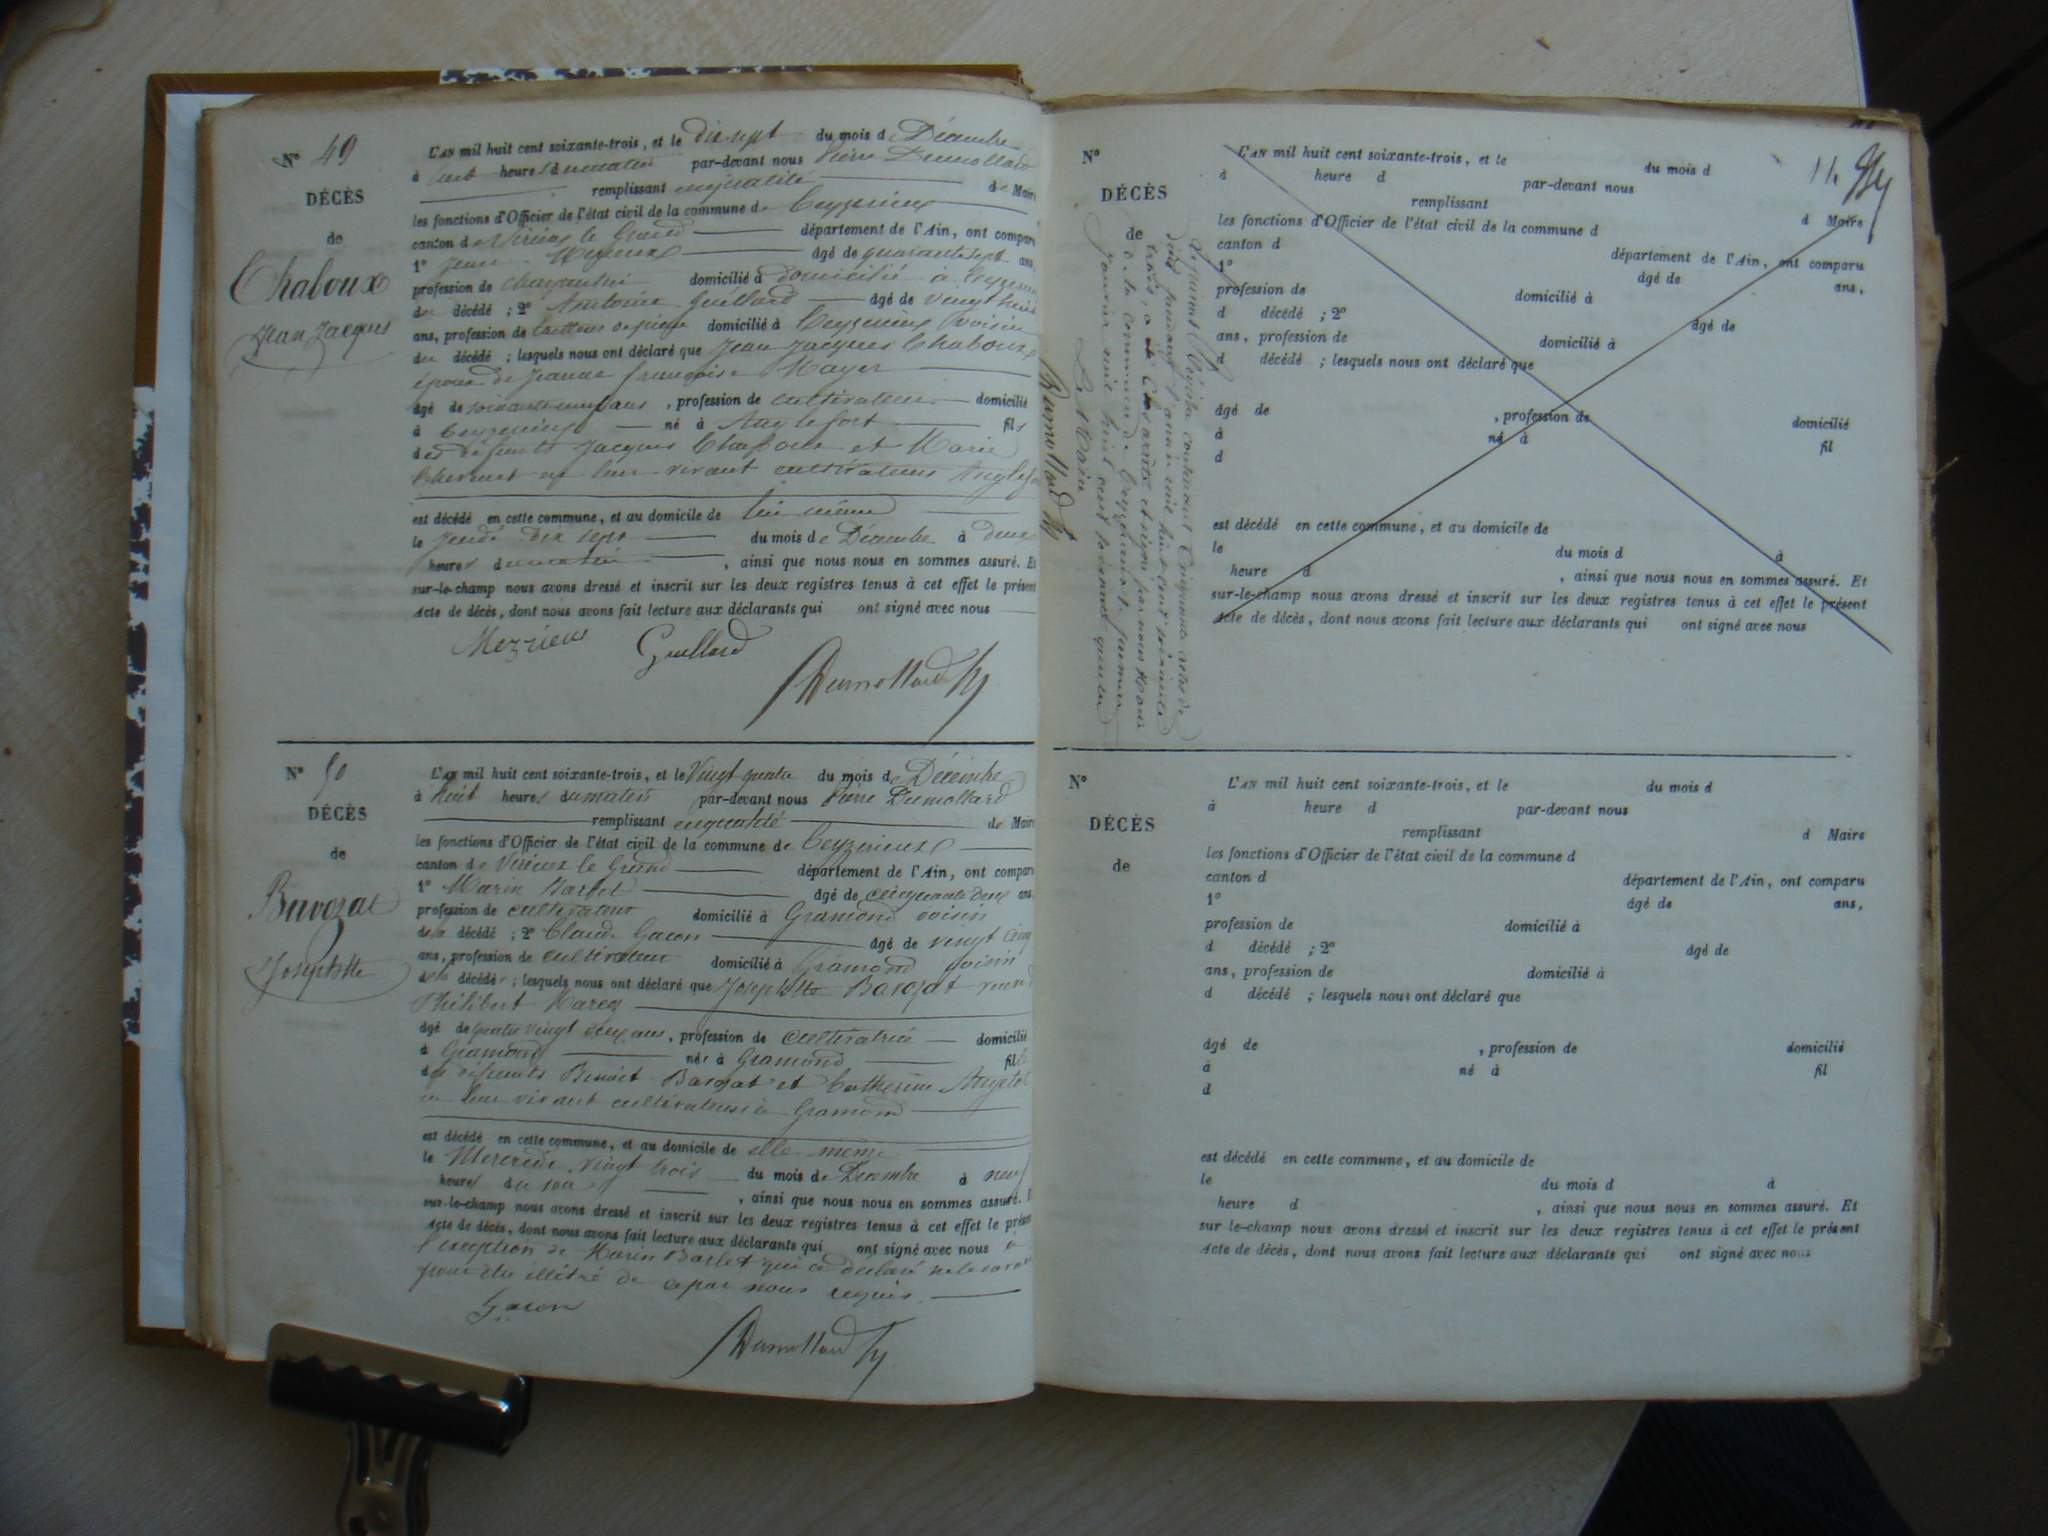 N° 49
DÉCÈS
de
Chaboux
Jean Jacques
L'AN mil huit cent soixante-trois, et le dix sept du mois de Décembre
à heures du matin par-devant nous Pierre Dumollard
remplissant en qualité de Maire
les fonctions d'Officier de l'état civil de la commune de Ceyzerieux
canton de Virieux le Grand département de l'Ain, ont comparu
1° Jean âgé de quarante sept ans,
profession de charpentier domicilié à domicilié à Ceyzerieux
du décédé ; 2° Antoine Guillard âgé de vingt huit
ans, profession de tailleur de pierre domicilié à Ceyzerieux voisin
du décédé ; lesquels nous ont déclaré que Jean Jacques Chaboux
époux de Jeanne françoise Mayer
âgé de soixante ans, profession de cultivateur domicilié
à Ceyzerieux né à Anglefort fils
des défunts Jacques Chaboux et Marie
en leur vivant cultivateurs
est décédé en cette commune, et au domicile de lui même
le jeudi dix sept du mois de Décembre à deux
heures du matin, ainsi que nous nous en sommes assuré. Et
sur-le-champ nous avons dressé et inscrit sur les deux registres tenus à cet effet le présent
Acte de décès, dont nous avons fait lecture aux déclarants qui ont signé avec nous
Mezzieux Guillard
Dumollard
N° 50
DÉCÈS
de
Bavozat
Josephtte
L'AN mil huit cent soixante-trois, et le vingt quatre du mois de Décembre
à huit heures du matin par-devant nous Pierre Dumollard
remplissant en qualité de Maire
les fonctions d'Officier de l'état civil de la commune de Ceyzerieux
canton de Virieux le Grand département de l'Ain, ont comparu
1° Marin Barlet âgé de cinquante deux ans,
profession de cultivateur domicilié à Gramond voisin
de la décédé ; 2° Claude Gacon âgé de vingt cinq
ans, profession de cultivateur domicilié à Gramond voisin
de la décédé ; lesquels nous ont déclaré que Josephtte Bavozat
Philibert
âgé de quatre vingt ans, profession de cultivatrice domicilié
à Gramond née à Gramond fille
des défunts Benoit Bavozat et Catherine
en leur vivant cultivateurs à Gramond
est décédé en cette commune, et au domicile de elle même
le Mercredi vingt trois du mois de Décembre à neuf
heures du soir, ainsi que nous nous en sommes assuré.
sur-le-champ nous avons dressé et inscrit sur les deux registres tenus à cet effet le présent
Acte de décès, dont nous avons fait lecture aux déclarants qui ont signé avec nous à
l'exception de Marin Barlet qui a déclaré ne le savoir
pour être illétré de ce par nous requis.
Gacon
Dumollard
N°
DÉCÈS
de
L'AN mil huit cent soixante-trois, et le du mois d
à heure d par-devant nous
remplissant d Maire
les fonctions d'Officier de l'état civil de la commune d
canton d département de l'Ain, ont comparu
1° âgé de ans,
profession de domicilié à
d décédé ; 2° âgé de
ans, profession de domicilié à
d décédé ; lesquels nous ont déclaré que
âgé de , profession de domicilié
à né à fil
d
est décédé en cette commune, et au domicile de
le du mois d à
heure d , ainsi que nous nous en sommes assuré. Et
sur-le-champ nous avons dressé et inscrit sur les deux registres tenus à cet effet le présent
Acte de décès, dont nous avons fait lecture aux déclarants qui ont signé avec nous
Le présent Régistre contenant Cinquante actes de
décès pendant l'année mil huit cent soixante
trois, a été Clos arrêté et signé par nous Maire
de la commune de Ceyzerieux. premier
Janvier mil huit cent soixante quatre
Le Maire
Dumollard
N°
DÉCÈS
de
L'AN mil huit cent soixante-trois, et le du mois d
à heure d par-devant nous
remplissant d Maire
les fonctions d'Officier de l'état civil de la commune d
canton d département de l'Ain, ont comparu
1° âgé de ans,
profession de domicilié à
d décédé ; 2° âgé de
ans, profession de domicilié à
d décédé ; lesquels nous ont déclaré que
âgé de , profession de domicilié
à né à fil
d
est décédé en cette commune, et au domicile de
le du mois d à
heure d , ainsi que nous nous en sommes assuré. Et
sur le-champ nous avons dressé et inscrit sur les deux registres tenus à cet effet le présent
Acte de décès, dont nous avons fait lecture aux déclarants qui ont signé avec nous